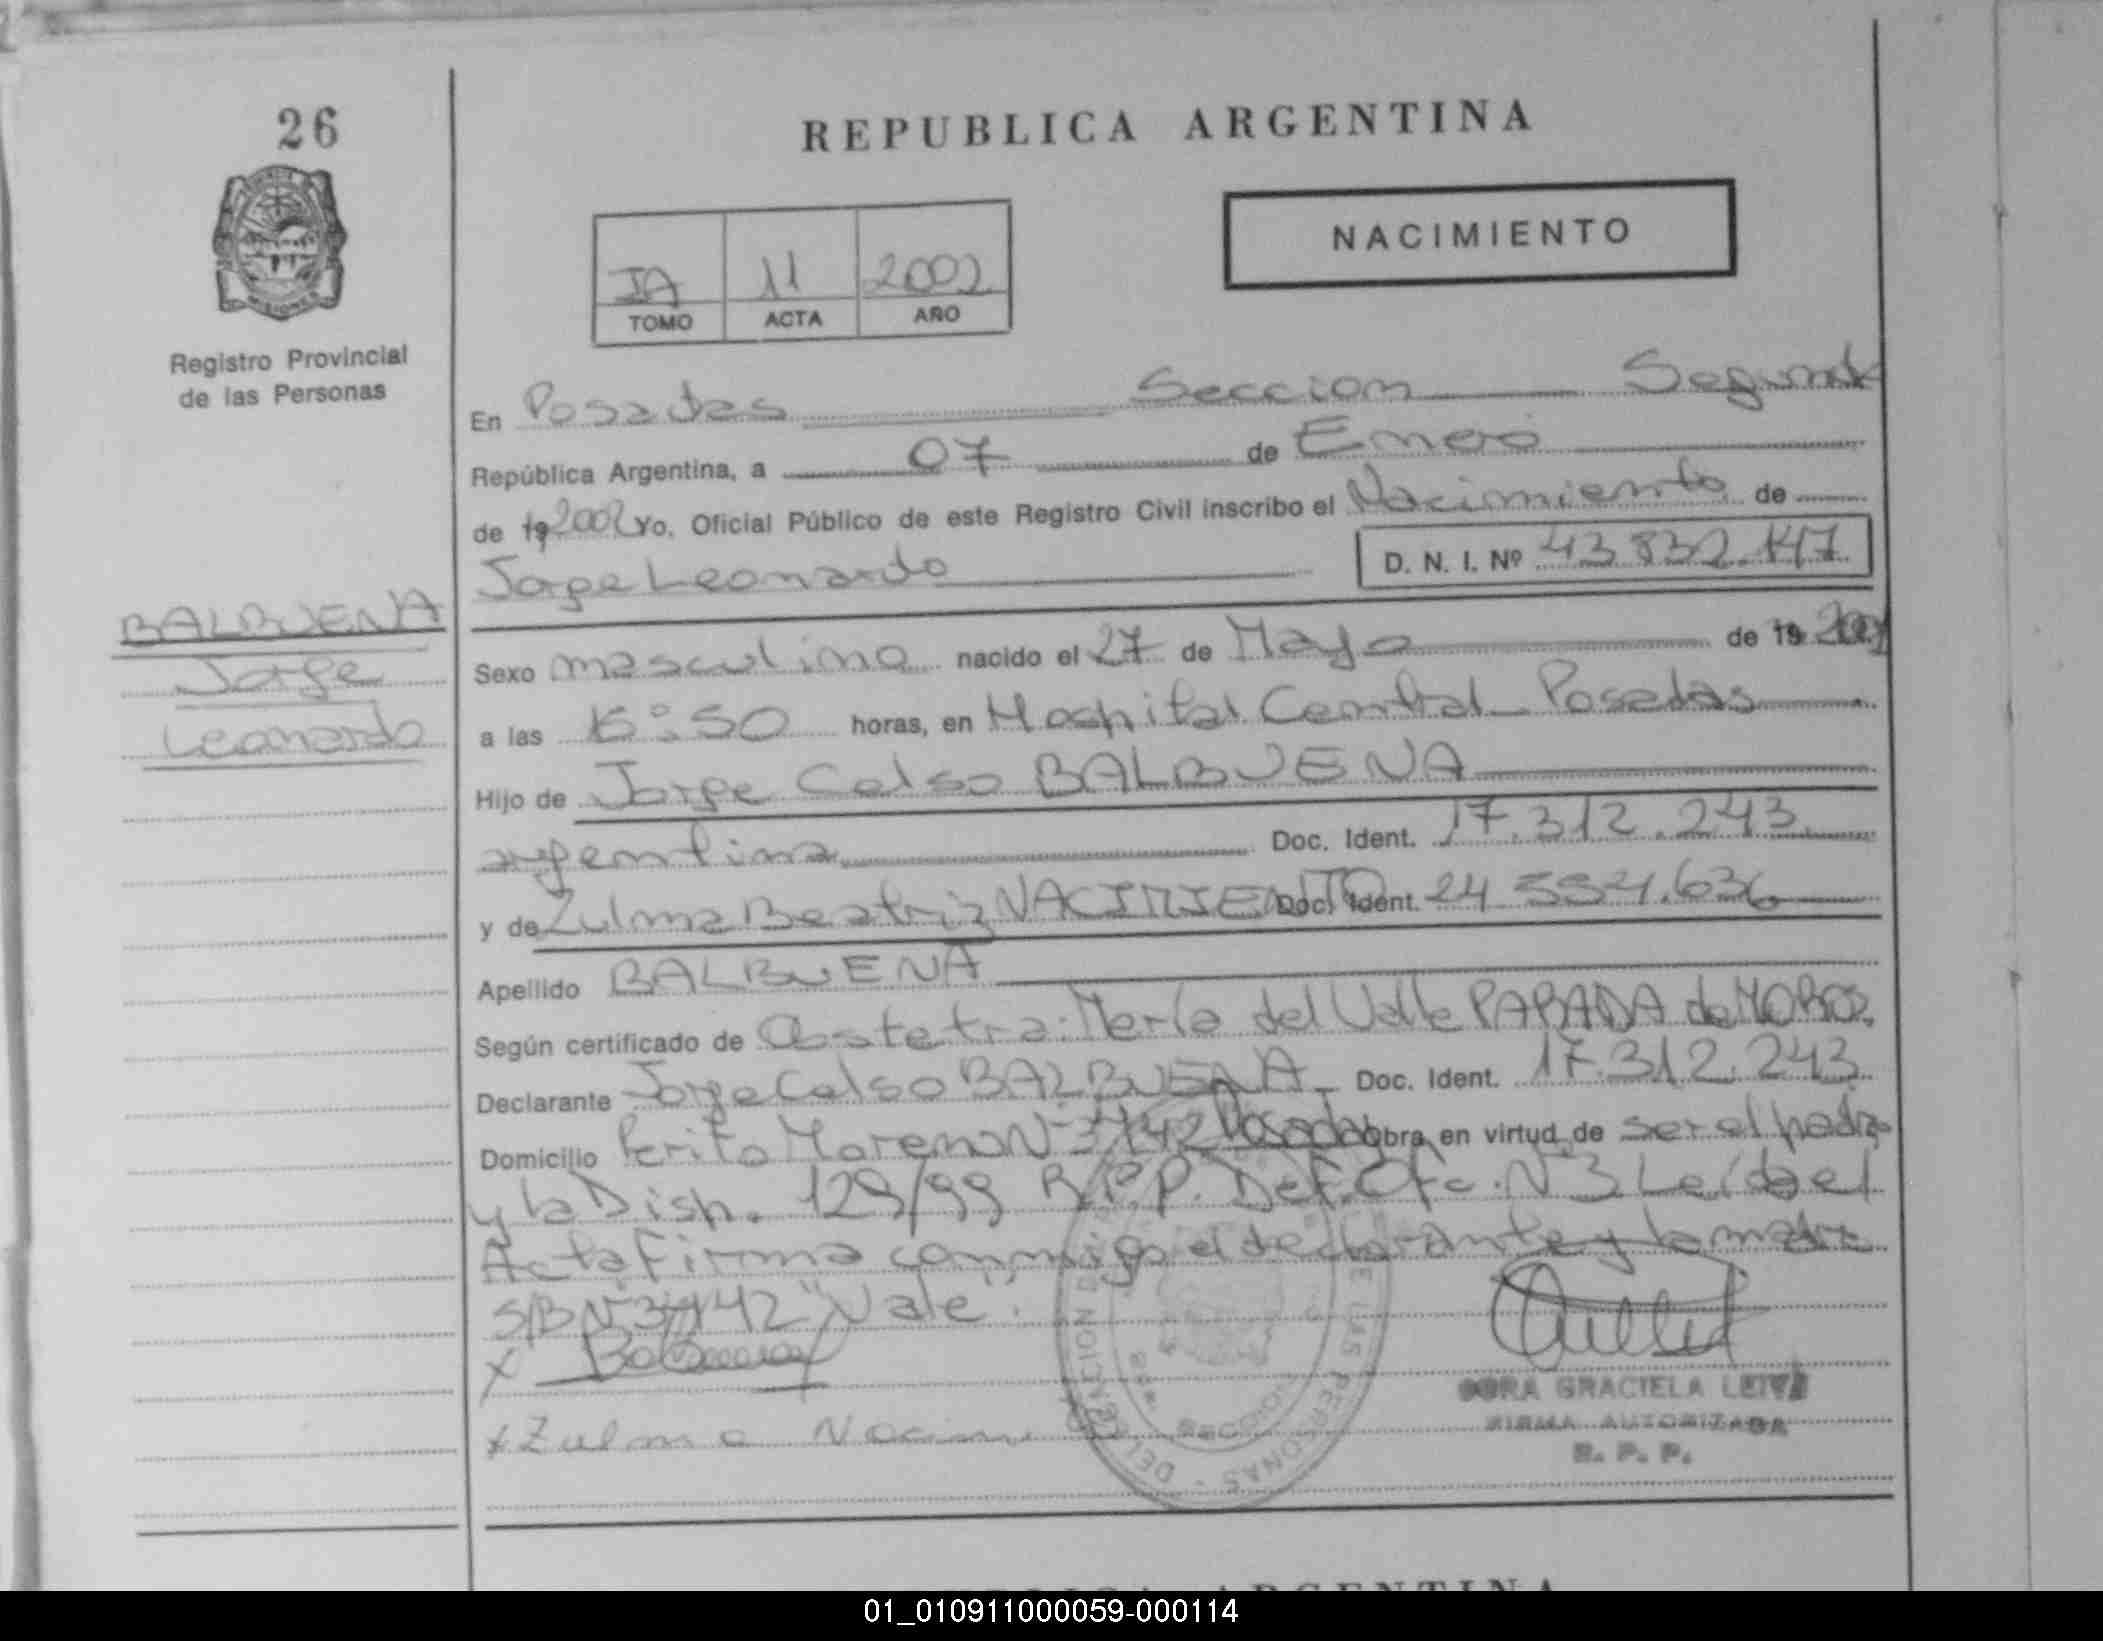 26
REPUBLICA ARGENTINA
NACIMIENTO
IA 11 2002
TOMO ACTA AÑO
Registro Provincial
de las Personas
En Posadas Seccion Segunda
República Argentina, a 07 de Enero
de 19 2002 Yo, Oficial Público de este Registro Civil inscribo el Nacimiento de
Jorge Leonardo D. N. I. Nº 43 832.147
BALBUENA
Jorge
Leonardo
Sexo masculino nacido el 27 de Mayo de 19
a las 16:50 horas, en Hospital Central Posadas
Hijo de Jorge Celso BALBUENA
argentina Doc. Ident. 17.312.243
y de Zulma Beatriz NACIMIENTO Doc. Ident. 24 554.636
Apellido BALBUENA
Según certificado de Obstetra: María del Valle PARADA de
Declarante Jorge Celso BALBUENA Doc. Ident. 17.312.243
Domicilio Perito Moreno Nº 3742 Posadas obra en virtud de ser el padre
y la Disp. 129/99 R.P.P. Def. Ofc. Nº 3 Leída el
Acta Firma conmigo el declarante y la madre
S/B Nº 3742 "Vale".
x Balbuena
x Zulma Nacim
DELEGACION DE LAS PERSONAS
SECCION
DORA GRACIELA LEIVA
FIRMA AUTORIZADA
R. P. P.
REPUBLICA ARGENTINA
01_010911000059-000114